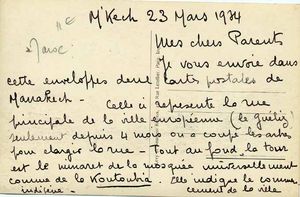 M'Kech 23 Mars 1934
Maroc
Mes chers Parents
Je vous envoie dans
cette enveloppes deux cartes postales de
Marrakech - Celle ci represente la rue
principale de la ville européenne (le gueliz)
seulement depuis 4 mois on a coupé les arbres
pour elargir la rue - Tout au fond la tour
est le minaret de la mosquée universellement
connue de la Koutoubia. Elle indique le commen-
cement de la ville
indigène -